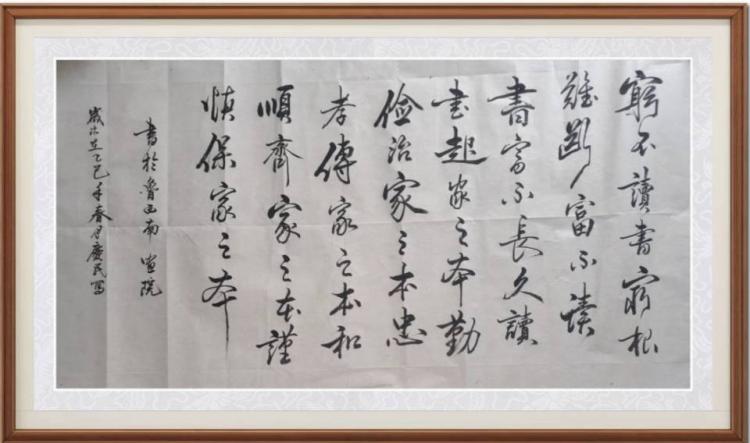 窮不讀書窮根
難斷富不讀
書富不長久讀
書起家之本勤
儉治家之本忠
孝傳家之本和
順齊家之本謹
慎保家之本
書於魯西南畫院
歲次在乙巳年春月慶民寫